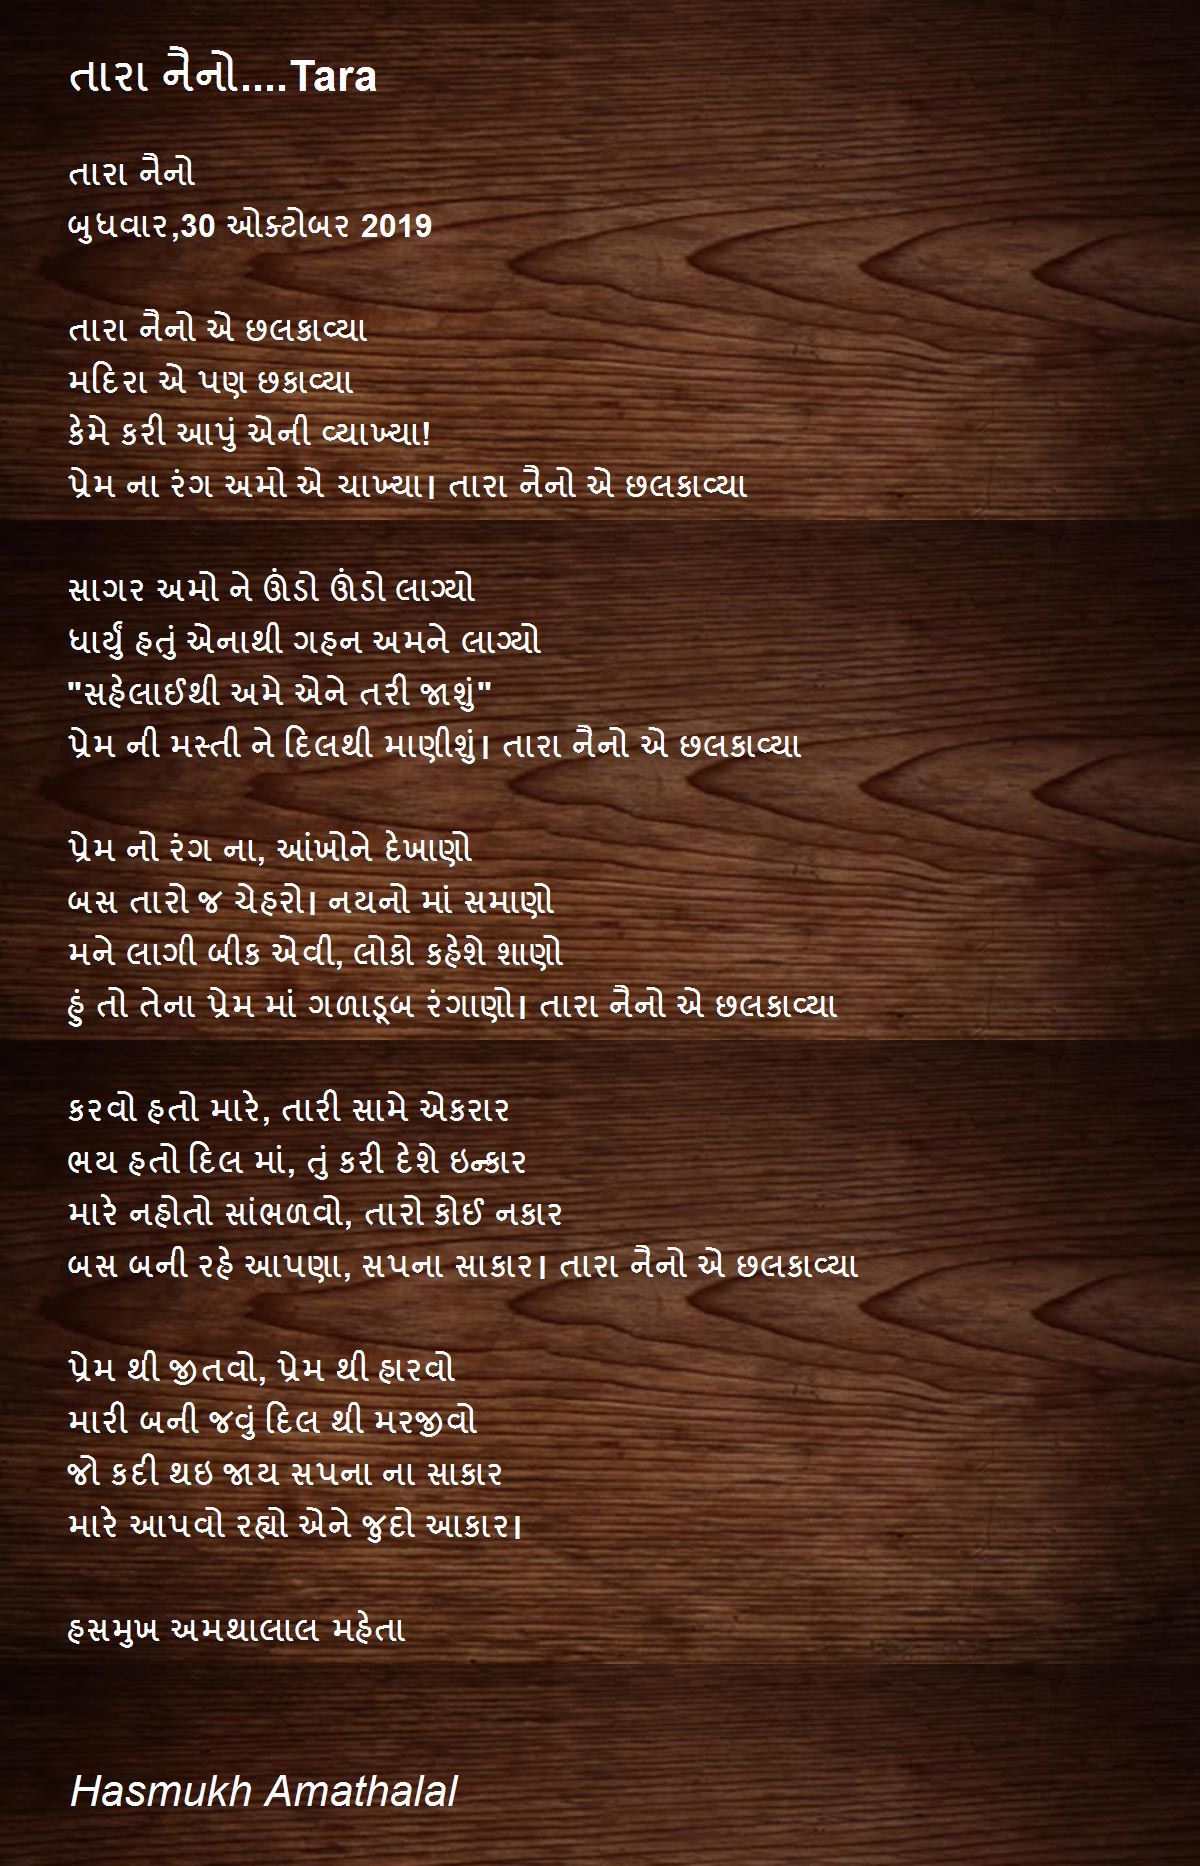 તારા નૈનો....Tara
તારા નૈનો
બુધવાર,30 ઓક્ટોબર 2019
તારા નૈનો એ છલકાવ્યા
મદિરા એ પણ છકાવ્યા
કેમે કરી આપું એની વ્યાખ્યા!
પ્રેમ ના રંગ અમો એ ચાખ્યા। તારા નૈનો એ છલકાવ્યા
સાગર અમો ને ઊંડો ઊંડો લાગ્યો
ધાર્યું હતું એનાથી ગહન અમને લાગ્યો
"સહેલાઈથી અમે એને તરી જાશું"
પ્રેમ ની મસ્તી ને દિલથી માણીશું। તારા નૈનો એ છલકાવ્યા
પ્રેમ નો રંગ ના, આંખોને દેખાણો
બસ તારો જ ચેહરો। નયનો માં સમાણો
મને લાગી બીક એવી, લોકો કહેશે શાણો
હું તો તેના પ્રેમ માં ગળાડૂબ રંગાણો। તારા નૈનો એ છલકાવ્યા
કરવો હતો મારે, તારી સામે એકરાર
ભય હતો દિલ માં, તું કરી દેશે ઇન્કાર
મારે નહોતો સાંભળવો, તારો કોઈ નકાર
બસ બની રહે આપણા, સપના સાકાર। તારા નૈનો એ છલકાવ્યા
પ્રેમ થી જીતવો, પ્રેમ થી હારવો
મારી બની જવું દિલ થી મરજીવો
જો કદી થઇ જાય સપના ના સાકાર
મારે આપવો રહ્યો એને જુદો આકાર।
હસમુખ અમથાલાલ મહેતા
Hasmukh Amathalal